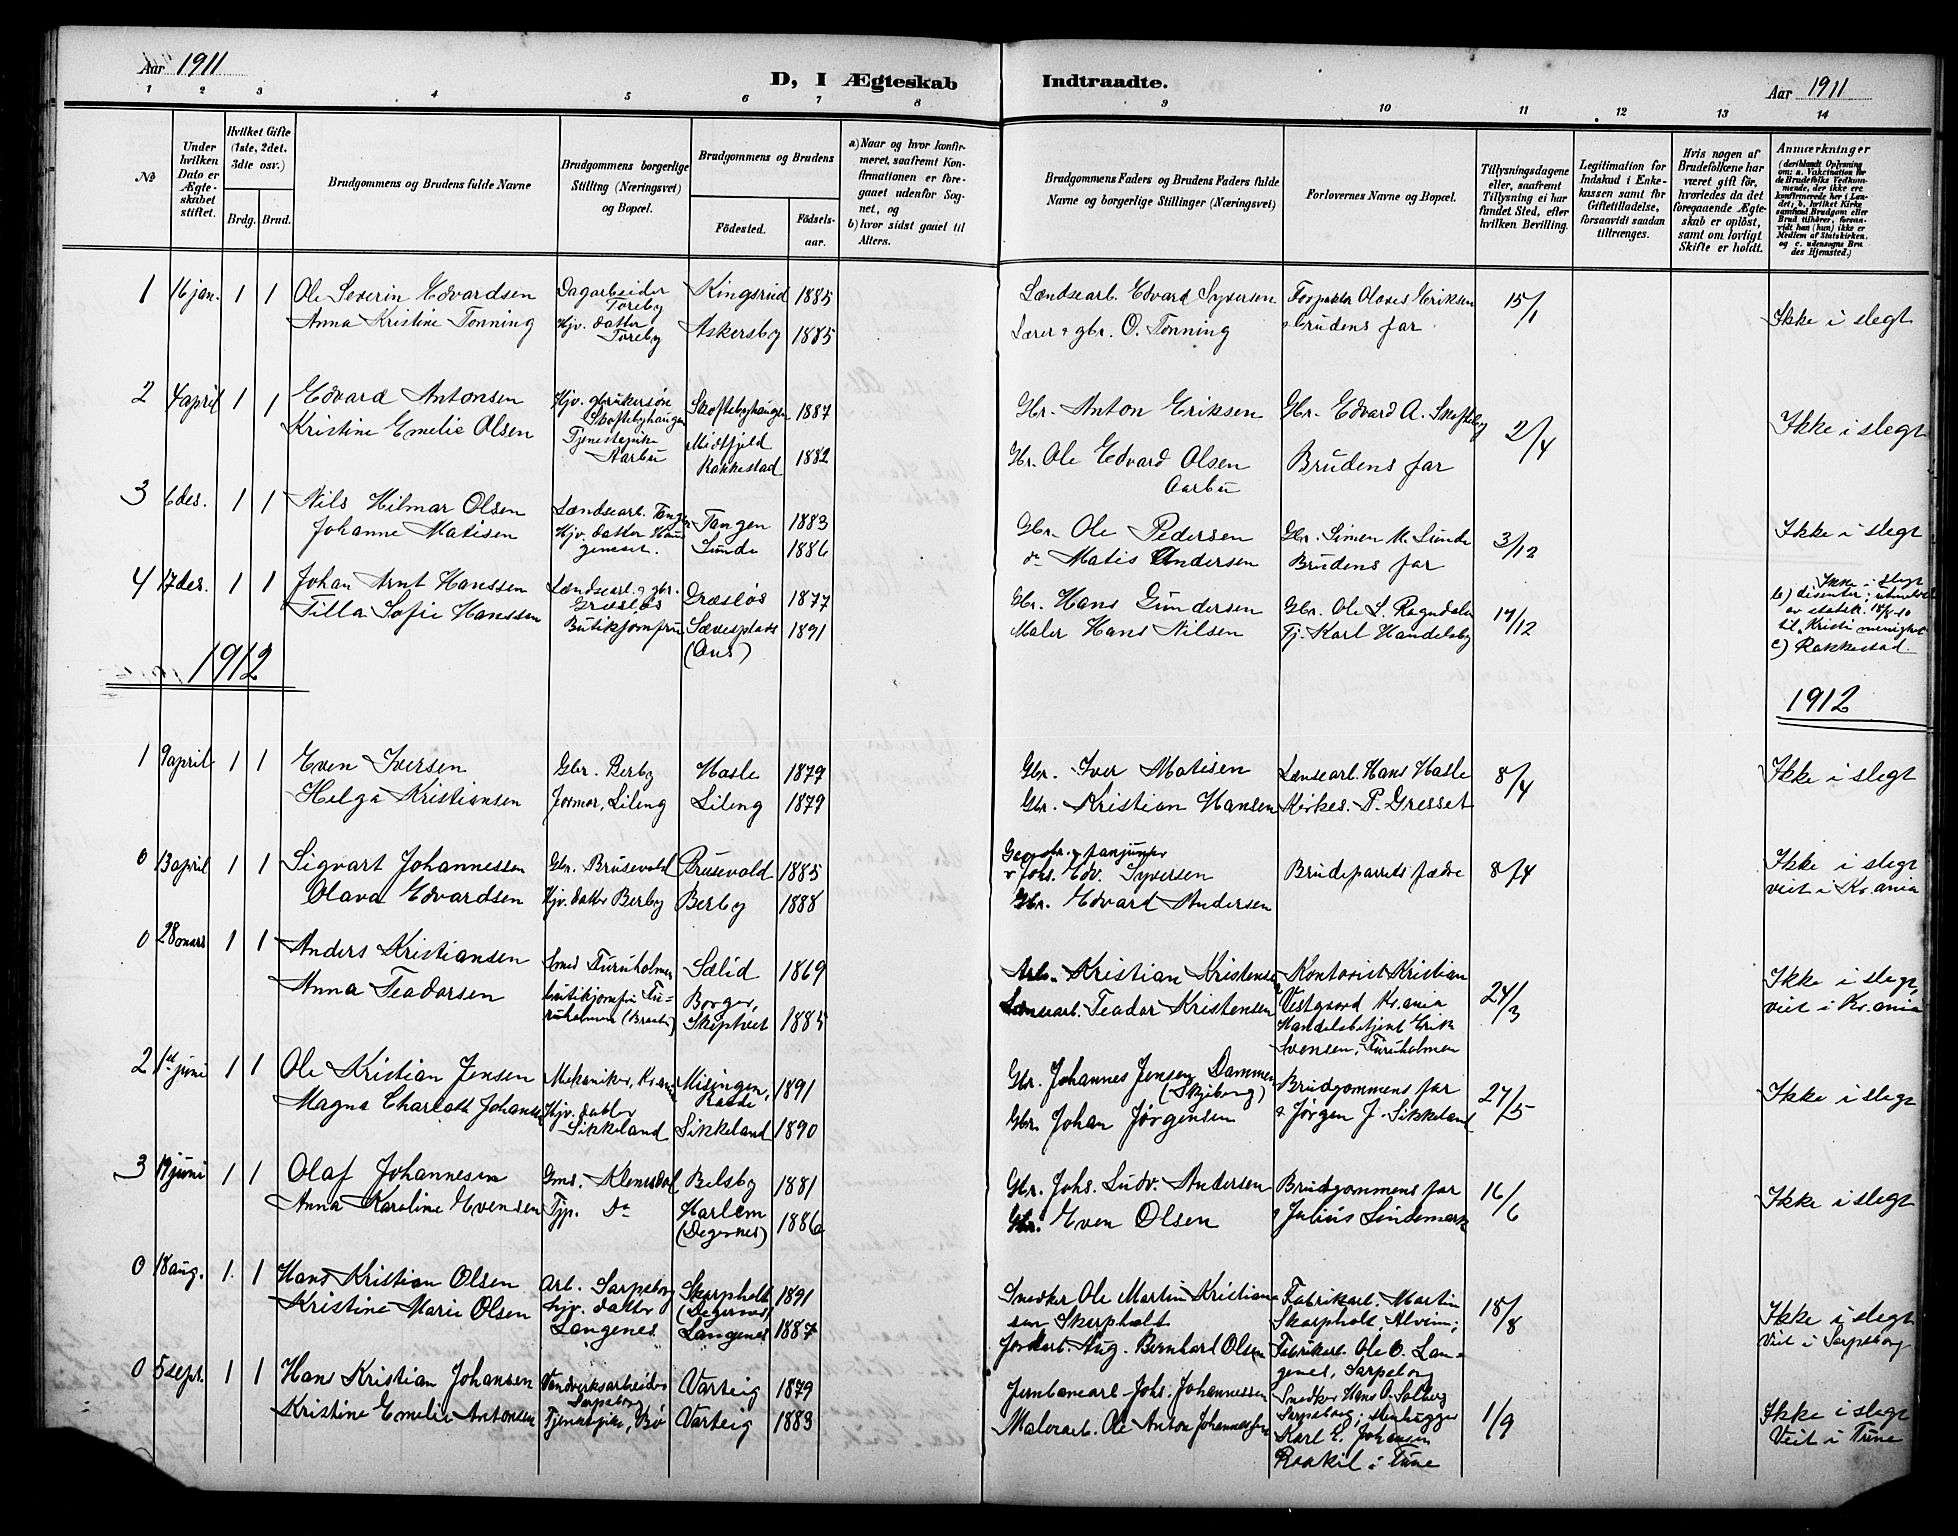 Aar 1911
D, I Ægteskab Indtraadte.
Aar 1911
1 2 3 4 5 6 7 8 9 10 11 12 13 14
No
Under hvilken Dato er Ægteskabet stiftet.
Hvilket Gifte (1ste, 2det, 3die osv.)
Brdg. Brud.
Brudgommens og Brudens fulde Navne
Brudgommens borgerlige Stilling (Næringsvei) og Bopæl.
Brudgommens og Brudens
Fødested. Fødselsaar.
a) Naar og hvor konfirmeret, saafremt Konfirmationen er foregaaet udenfor Sognet, og
b) hvor sidst gaaet til Alters.
Brudgommens Faders og Brudens Faders fulde Navne og borgerlige Stillinger (Næringsvei)
Forlovernes Navne og Bopæl.
Tillysningsdagene eller, saafremt Tillysning ei har fundet Sted, efter hvilken Bevilling.
Legitimation for Indskud i Enkekassen samt for Giftetilladelse, forsaavidt saadan tiltrænges.
Hvis nogen af Brudefolkene har været gift før, hvorledes da det foregaaende Ægteskab er opløst, samt om lovligt Skifte er holdt.
Anmærkninger
(deriblandt Oplysning om: a. Vaccination for de Brudefolks Vedkommende, der ikke ere konfirmerede her i Landet, b. hvilket Kirkesamfund Brudgom eller Brud tilhører, forsaavidt han (hun) ikke er Medlem af Statskirken, og c. udensogns Brudes Hjemsted.)
1 16 jan. 1 1 Ole Severin Edvardsen Dagarbeider Toreby Kingsrud 1885 Lændsearb. Edvard Syversen Forpakter Olaves Eriksen 15/1 Ikke i slegt
Anna Kristine Tonning Hjv. datter Toreby Askersby 1885 Lærer & gbr. O. Tonning & brudens far
2 4 april 1 1 Edvard Antonsen Hjv. gbrukersøn Skoftebyhaugen Skoftebyhaugen 1887 Gbr. Anton Eriksen Gbr. Edvard A. Skofteby 2/4 Ikke i slegt
Kristine Emelie Olsen Tjenestepike Aarbu Midtfjeld Rakkestad 1882 Gbr. Ole Edvard Olsen Aarbu Brudens far
3 6 des. 1 1 Nils Hilmar Olsen Lændsearb. Tangen Tangen 1883 Gbr. Ole Pedersen Gbr. Simen M. Sunde 3/12 Ikke i slegt
Johanne Matisen Hjv. datter Sunde 1886 do Matis Andersen Brudens far
4 17 des. 1 1 Johan Arnt Hanssen Lændsearb. & gbr. Græsløs Græsløs 1877 Gbr. Hans Gundersen Gbr. Ole S. Ragndalen 17/12 Ikke i slegt
Tilla Sofie Hanssen Butikjomfru Sævesplads (Ous) 1891 Maler Hans Nilsen Tj. Karl Handelsby
b) disenter; utmeldt av statsk. 18/8-10 til "Kristi menighet"
c) Rakkestad.
1912
1912
1 9 april 1 1 Even Iversen Gbr. Berby Hasle 1879 Gbr. Iver Matisen Lænsearb. Hans Hasle 8/4 Ikke i slegt
Helga Kristiansen Jormor, Lileng Lileng 1879 Gbr. Kristian Hansen Kirkes. P. Gresset
0 13 april 1 1 Sigvart Johannessen Gbr. Brusevold Brusevold 1885 Johs. Edv. Syversen Brudeparrets fædre 8/4 Ikke i slegt
Olava Edvardsen Hjv. datter Berby Berby 1888 Gbr. Edvard Andersen viet i Kr.ania
0 28 mars 1 1 Anders Kristiansen Smed Furuholmen Sælid 1869 Arb. Kristian Kristensen Kontorist Kristian Vestgaard Kr.ania 24/3 Ikke i slegt,
Anna Teodorsen butikjomfru Furuholmen Borger, Skiptvet 1885 Lænsearb. Teodor Kristensen Handelsbetjent Erik Svensen, Furuholmen viet i Kr.ania
2 1st juni 1 1 Ole Kristian Jensen Mekaniker, Kr.ania Misingen, Raade 1891 Gbr. Johannes Jensen Dammen (Skjeberg) Brudgommens far 27/5 Ikke i slegt
Magna Charlotte Johansen Hjv. datter Sikkeland Sikkeland 1890 Gbr. Johan Jørgensen & Jørgen J. Sikkeland
3 19 juni 1 1 Olaf Johannesen Gms. Klenesdal Belsby 1881 Gbr. Johs. Ludv. Andersen Brudgommens far 16/6 Ikke i slegt
Anna Karoline Evensen Tjp. do Harlem (Degernes) 1886 Gbr. Even Olsen & Julius Lindemark
0 18 aug. 1. 1 Hans Kristian Olsen Arb. Sarpsborg Skarpholt (Degernes) 1891 Snedker Ole Martin Kristiansen Skarpholt Fabrikarb. Martin Skarpholt, Alvim; 18/8 Ikke i slegt
Kristine Marie Olsen hjv. datter Langenes Langenes 1887 Jordarb. Aug. Bernhard Olsen Fabrikarb. Ole O. Langenes, Sarpsborg Viet i Sarpsborg
0 5 sept. 1 1 Hans Kristian Johansen Vandverksarbeider Sarpsborg Varteig 1879 Jernbanearb. Johs. Johannessen Snedker Hans O. Solberg Sarpsborg; stenhugger 1/9 Ikke i slegt
Kristine Emelie Antonsen Tjenestpike, Varteig 1883 Malerarb. Ole Anton Johannessen Karl E. Johansen Raakil i Tune Viet i Tune